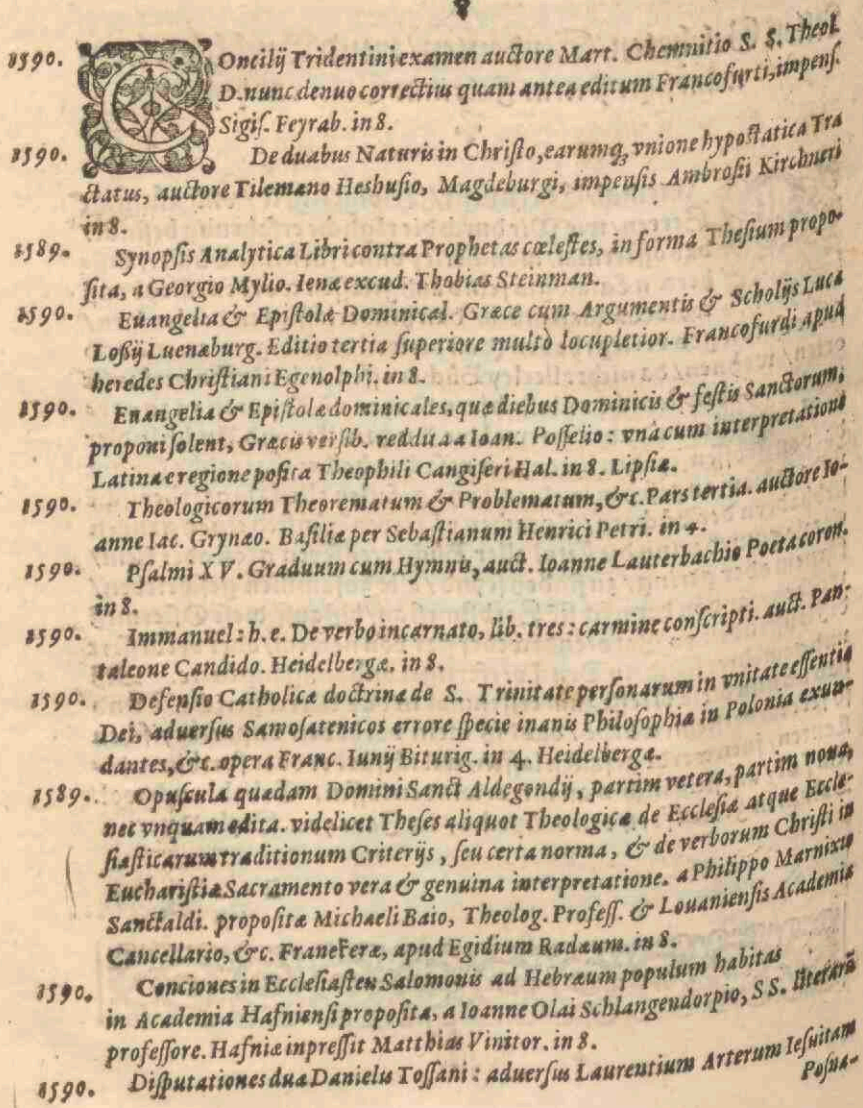 1590. COncilij Tridentini examen auctore Mart. Chemnitio S. S. Theol.
D. nunc denuo correctius quam antea editum Francofurti, impens.
Sigis. Feyrab. in 8.
1590. De duabus Naturis in Christo, earumq; vnione hypostatica Tra
ctatus, auctore Tilemano Heshusio, Magdeburgi, impensis Ambrosii Kirchneri
in 8.
1589. Synopsis Analytica Libri contra Prophetas cœlestes, in forma Thesium propo-
sita, a Georgio Mylio. Ienæ excud. Thobias Steinman.
1590. Euangelia & Epistolæ Dominical. Græce cum Argumentis & Scholijs Lucæ
Lossij Luenæburg. Editio tertia superiore multò locupletior. Francofurdi apud
heredes Christiani Egenolphi. in 8.
1590. Euangelia & Epistolæ dominicales, quæ diebus Dominicis & festis Sanctorum,
proponi solent, Græcis versib. reddita a Ioan. Posselio: vna cum interpretatione
Latina e regione posita Theophili Cangiseri Hal. in 8. Lipsiæ.
1590. Theologicorum Theorematum & Problematum, &c. Pars tertia. auctore Io-
anne Iac. Grynæo. Basiliæ per Sebastianum Henrici Petri. in 4.
1590. Psalmi XV. Graduum cum Hymnis, auct. Ioanne Lauterbachio Poeta coron.
in 8.
1590. Immanuel: h. e. De verbo incarnato, lib. tres: carmine conscripti. auct. Pan-
taleone Candido. Heidelbergæ. in 8.
1590. Defensio Catholicæ doctrinæ de S. Trinitate personarum in vnitate essentiæ
Dei, aduersus Samosatenicos errore specie inanis Philosophiæ in Polonia exun-
dantes, &c. opera Franc. Iunij Biturig. in 4. Heidelbergæ.
1589. Opuscula quædam Domini Sanct Aldegondij, partim vetera, partim noua,
nec vnquam edita. videlicet Theses aliquot Theologicæ de Ecclesiæ atque Eccle-
siasticarum traditionum Criterijs, seu certa norma, & de verborum Christi in
Eucharistiæ Sacramento vera & genuina interpretatione. a Philippo Marnixio
Sanctaldi. propositæ Michaeli Baio, Theolog. Profess. & Louaniensis Academiæ
Cancellario, &c. Franekeræ, apud Egidium Radæum. in 8.
1590. Conciones in Ecclesiasten Salomonis ad Hebræum populum habitas
in Academia Hafniensi proposita, a Ioanne Olai Schlangendorpio, SS. literarũ
professore. Hafniæ inpressit Matthias Vinitor. in 8.
1590. Disputationes duæ Danielis Tossani: aduersus Laurentium Arterum Iesuitam
Posna-